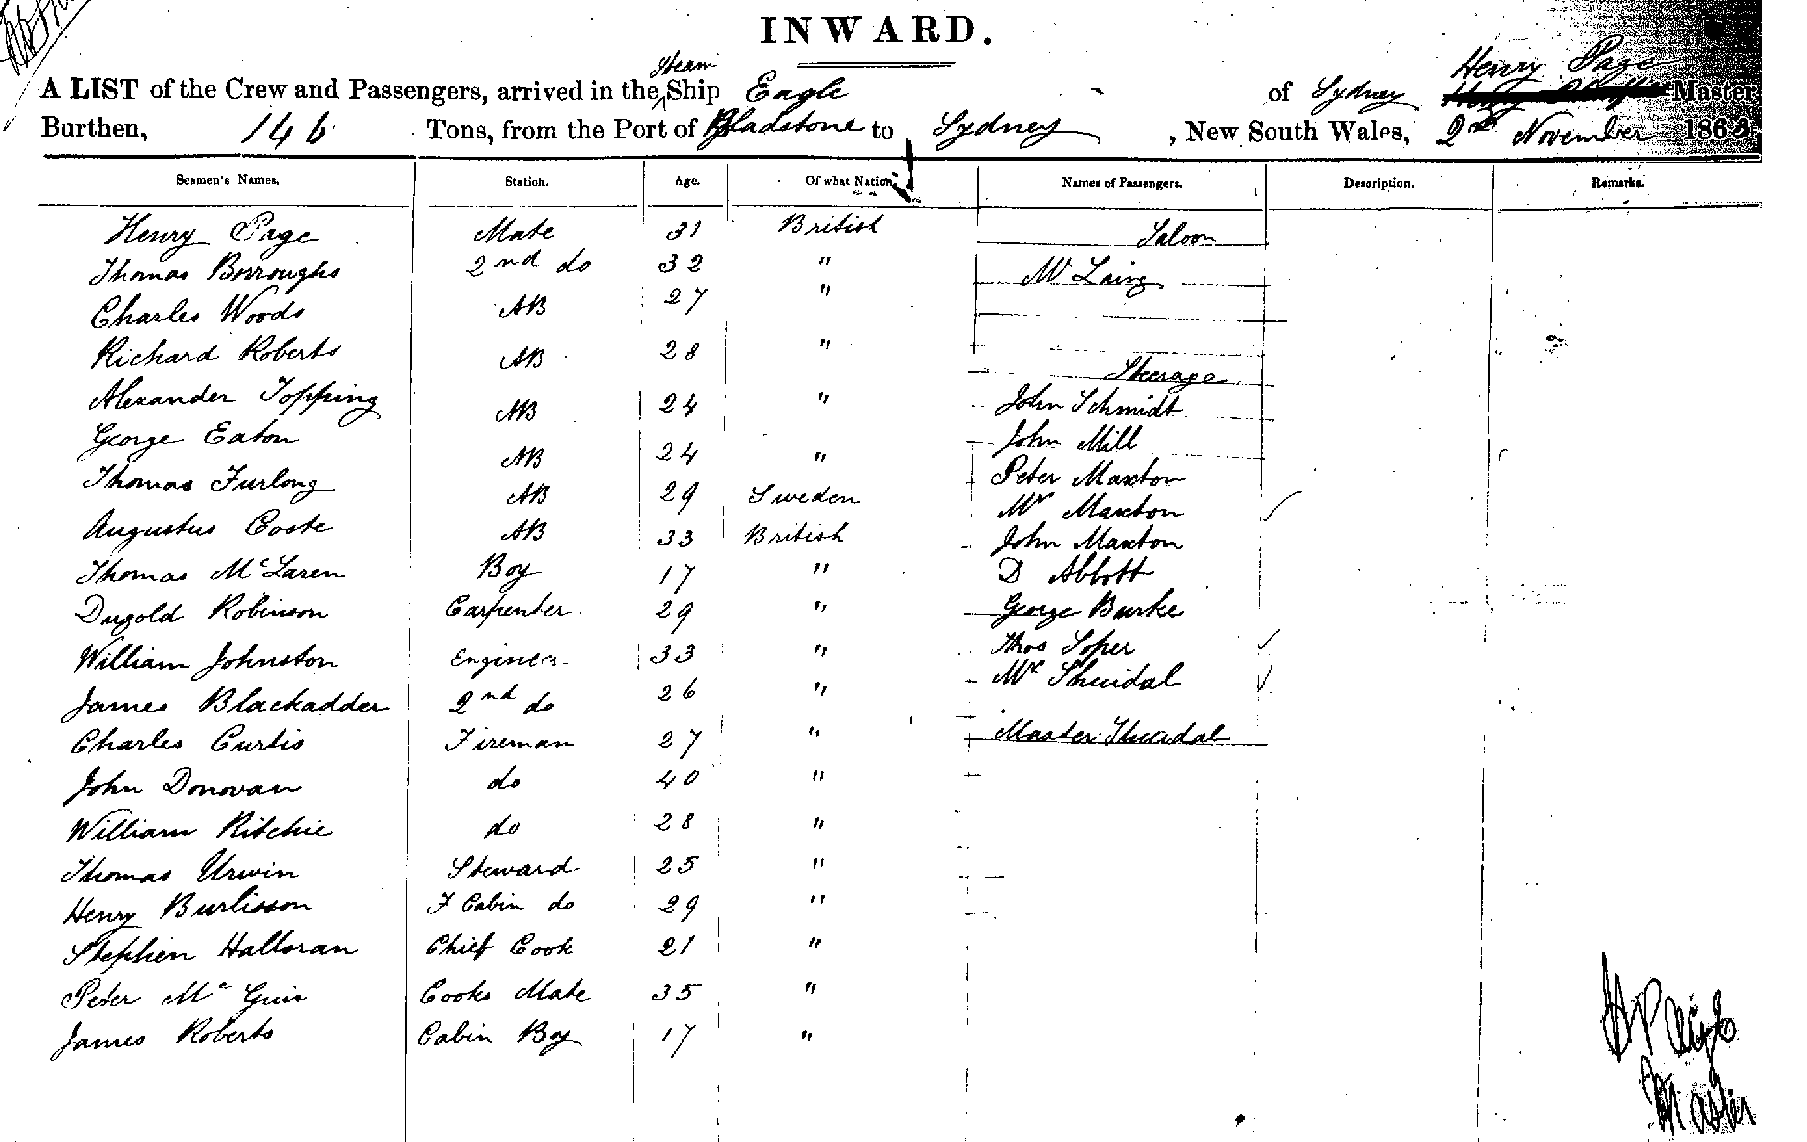 INWARD.
Steam
Henry Page
A LIST of the Crew and Passengers, arrived in the Ship Eagle of Sydney Master
Burthen, 146 Tons, from the Port of Gladstone to Sydney, New South Wales, 2nd November 1863
Seamen's Names. Station. Age. Of what Nation. Names of Passengers. Description. Remarks.
Henry Page Mate 31 British Saloon
Thomas Borroughs 2nd do 32 " Mr Laing
Charles Woods AB 27 "
Richard Roberts AB 28 " Steerage
Alexander Topping AB 24 " John Schmidt
George Eaton AB 24 " John Mill
Peter Maxton
Thomas Furlong AB 29 Sweden Mr Maxton
Augustus Coste AB 33 British John Maxton
Thomas McLaren Boy 17 " D Abbott
Dugold Robinson Carpenter 29 " George Burke
William Johnston Engineer 33 " Thos Soper
James Blackadder 2nd do 26 " Mr
Charles Curtis Fireman 27 " Master
John Donovan do 40 "
William Ritchie do 28 "
Thomas Urwin Steward 25 "
Henry Burlisson F Cabin do 29 "
Stephen Halloran Chief Cook 21 "
Peter Mc Guir Cooks Mate 35 "
James Roberts Cabin Boy 17 "
H Page
Master